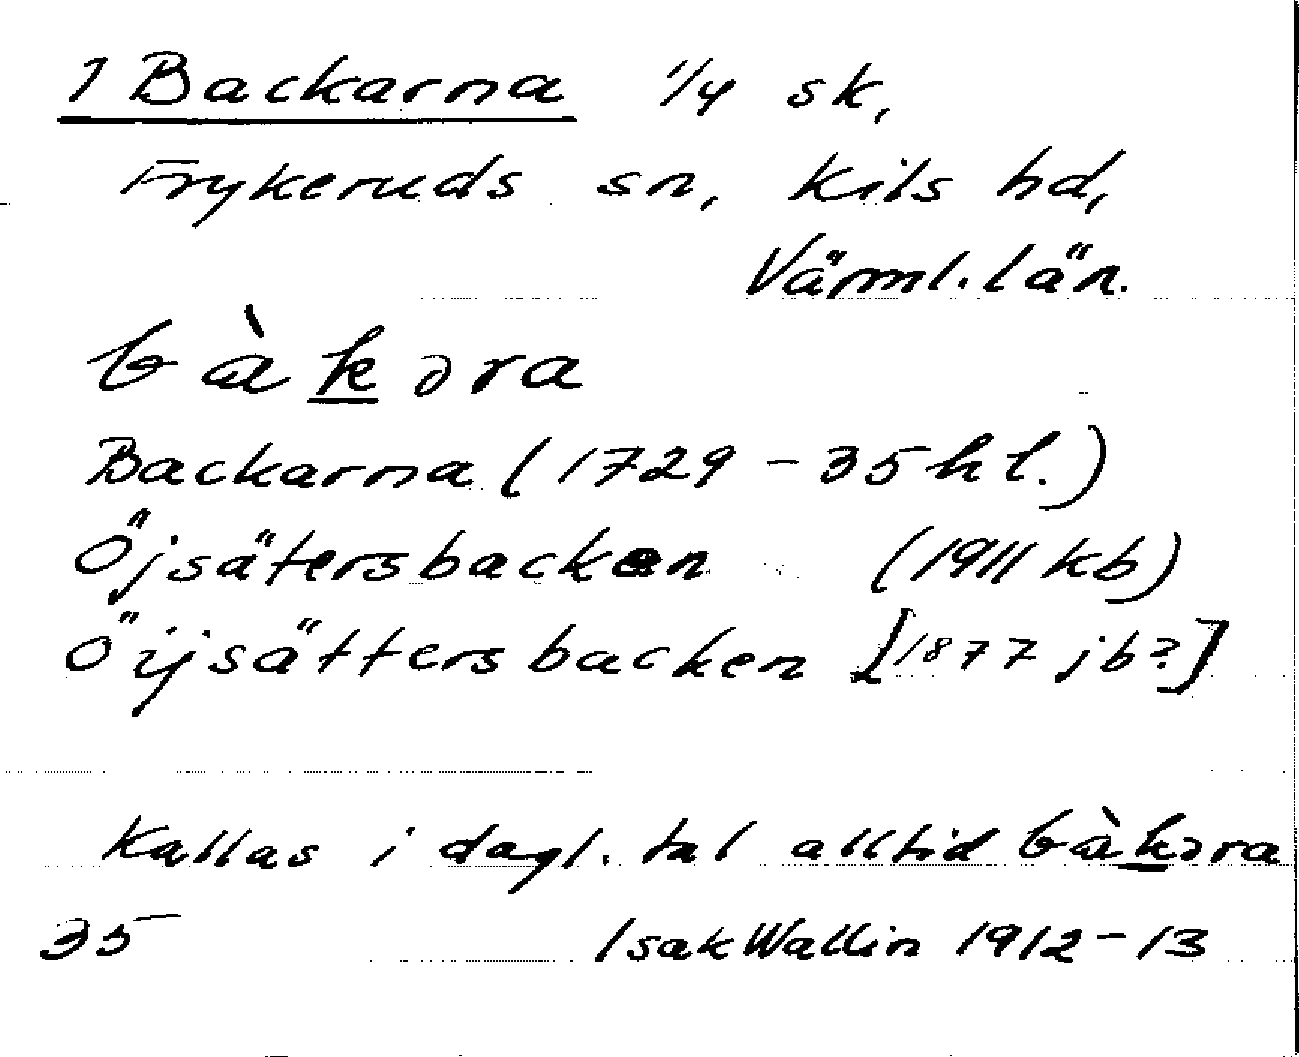 1 Backarna 1/4 sk,
Frykeruds sn, Kils hd,
Värml. län.
bàkəra
Backarna (1729-35 hl.)
Öjsätersbacken (1911 kb)
Öijsättersbacken [1877 jb?]
Kallas i dagl. tal alltid bàkəra
35 Isak Wallin 1912-13